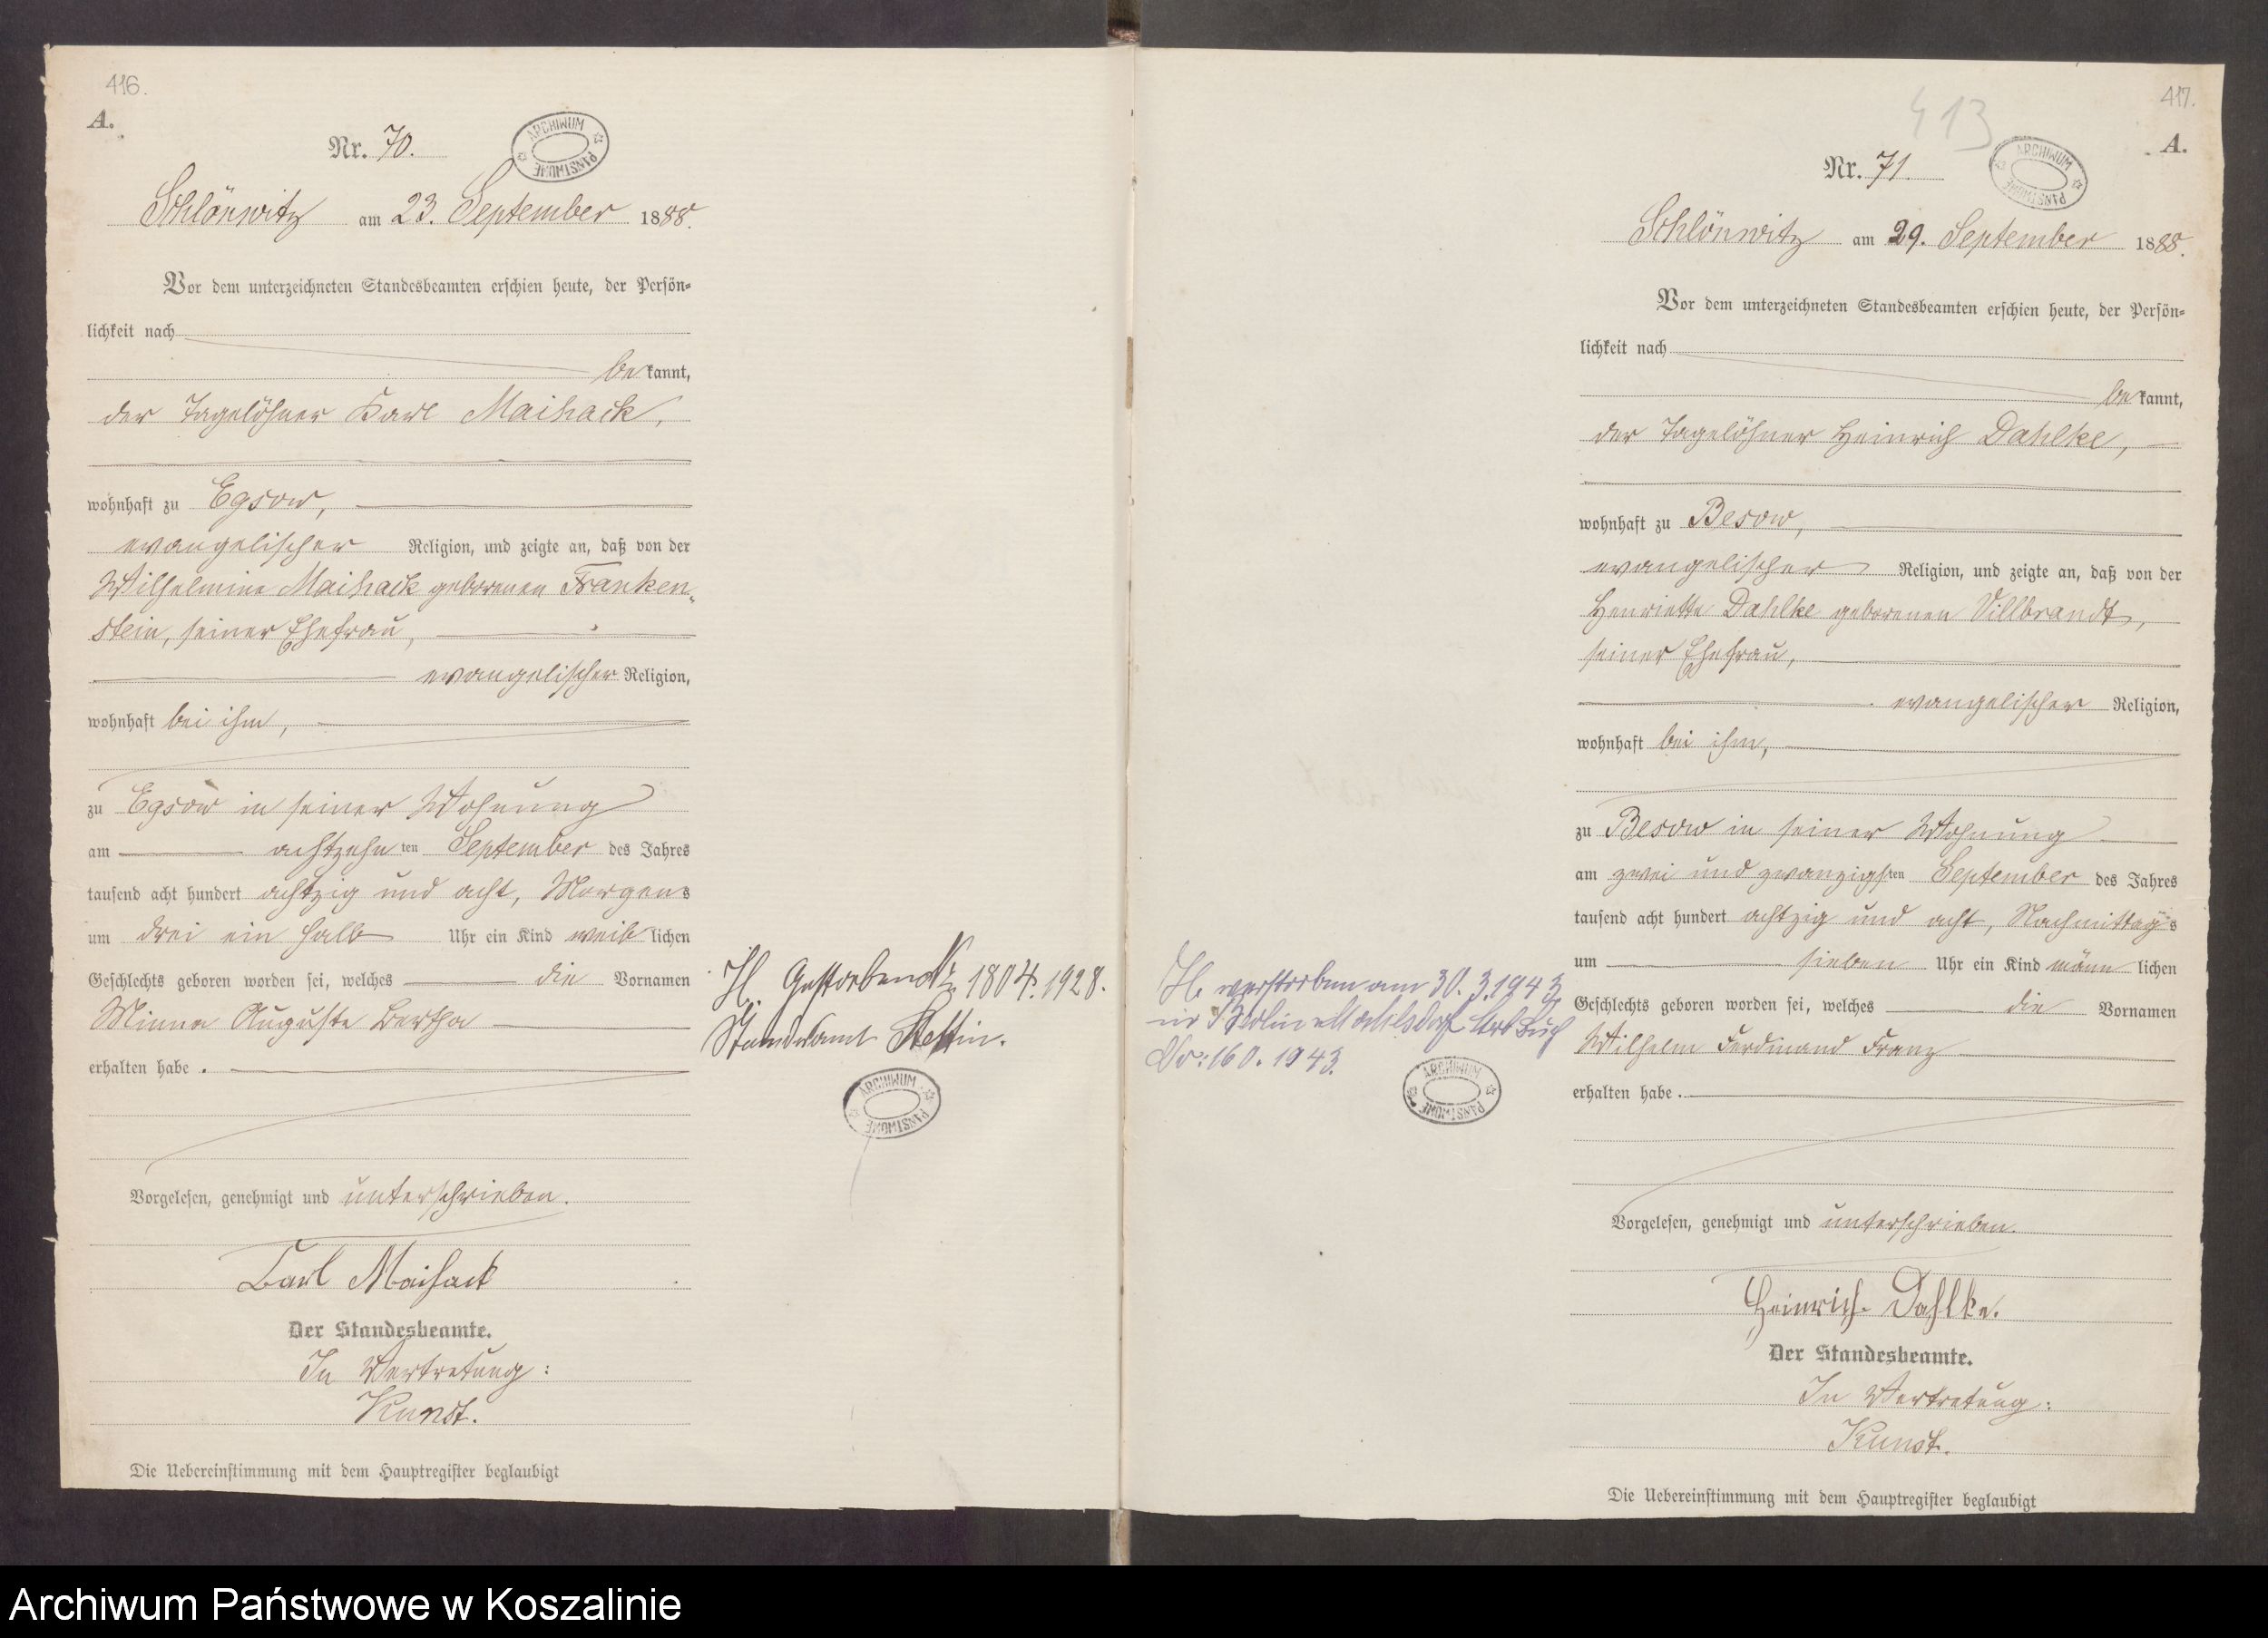 416.
A.
Nr. 70.
ARCHIWUM PAŃSTWOWE
Schlönwitz am 23. September 1888.
Vor dem unterzeichneten Standesbeamten erschien heute, der Persön-
lichkeit nach
bekannt,
der Tagelöhner Karl Maihack,
wohnhaft zu Egsow,
evangelischer Religion, und zeigte an, daß von der
Wilhelmine Maihack geborenen Franken-
stein, seiner Ehefrau,
evangelischer Religion,
wohnhaft bei ihm,
zu Egsow in seiner Wohnung
am achtzehnten September des Jahres
tausend acht hundert achtzig und acht, Morgens
um drei ein halb Uhr ein Kind weiblichen
Geschlechts geboren worden sei, welches die Vornamen
Minna Auguste Bertha
erhalten habe.
Vorgelesen, genehmigt und unterschrieben.
Carl Maihack
Der Standesbeamte.
In Vertretung:
Kunst.
Die Uebereinstimmung mit dem Hauptregister beglaubigt
H. Gestorben Nr. 1804. 1928.
Standesamt Stettin.
ARCHIWUM PAŃSTWOWE
417.
413
A.
Nr. 71.
ARCHIWUM PAŃSTWOWE
Schlönwitz am 29. September 1888.
Vor dem unterzeichneten Standesbeamten erschien heute, der Persön-
lichkeit nach
bekannt,
der Tagelöhner Heinrich Dahlke,
wohnhaft zu Besow,
evangelischer Religion, und zeigte an, daß von der
Henriette Dahlke geborenen Villbrandt,
seiner Ehefrau,
evangelischer Religion,
wohnhaft bei ihm,
zu Besow in seiner Wohnung
am zwei und zwanzigsten September des Jahres
tausend acht hundert achtzig und acht, Nachmittags
um sieben Uhr ein Kind männlichen
Geschlechts geboren worden sei, welches die Vornamen
Wilhelm Ferdinand Franz
erhalten habe.
Vorgelesen, genehmigt und unterschrieben.
Heinrich Dahlke.
Der Standesbeamte.
In Vertretung:
Kunst.
Die Uebereinstimmung mit dem Hauptregister beglaubigt
H. verstorben am 30. 3. 1943
in Berlin
Nr: 160. 1943.
ARCHIWUM PAŃSTWOWE
Archiwum Państwowe w Koszalinie